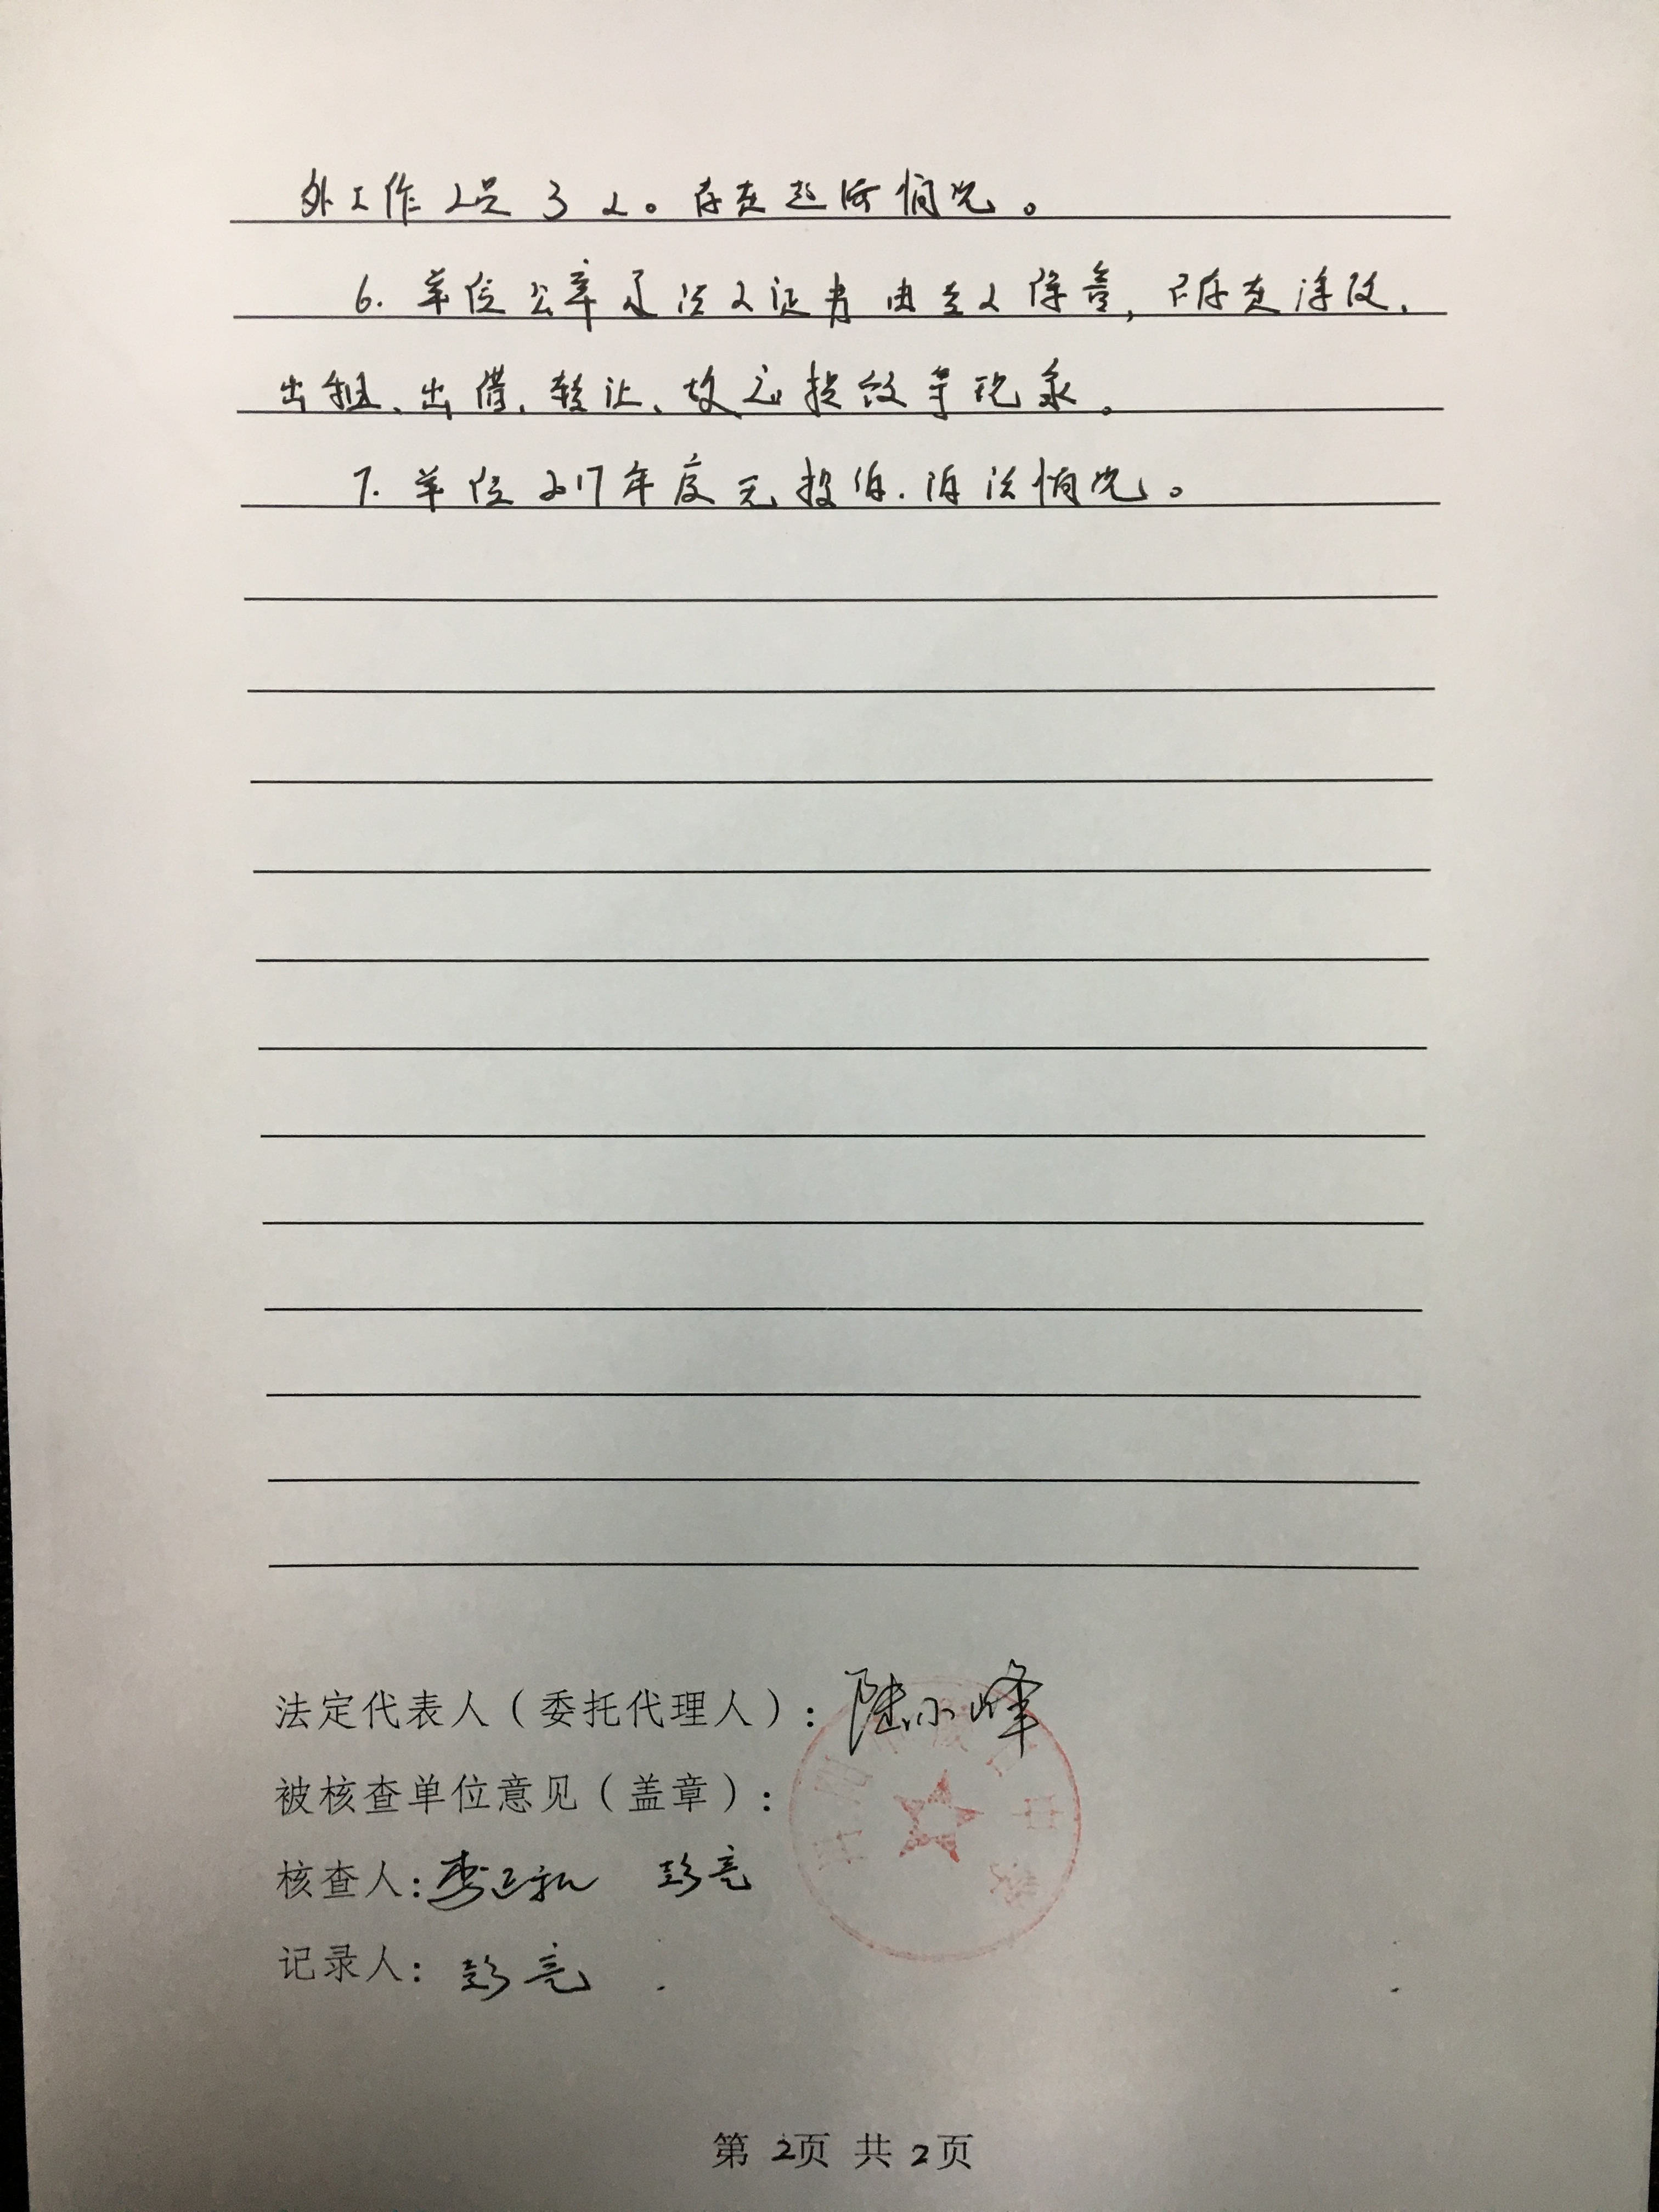 外工作人员3人。存在超编情况。
6. 单位公章及法人证书由专人保管,不存在涂改、
出租、出借、转让、故意损毁等现象。
7. 单位2017年度无投诉、诉讼情况。
法定代表人(委托代理人):陆小峰
被核查单位意见(盖章):
核查人: 彭亮
记录人:彭亮
第2页 共2页